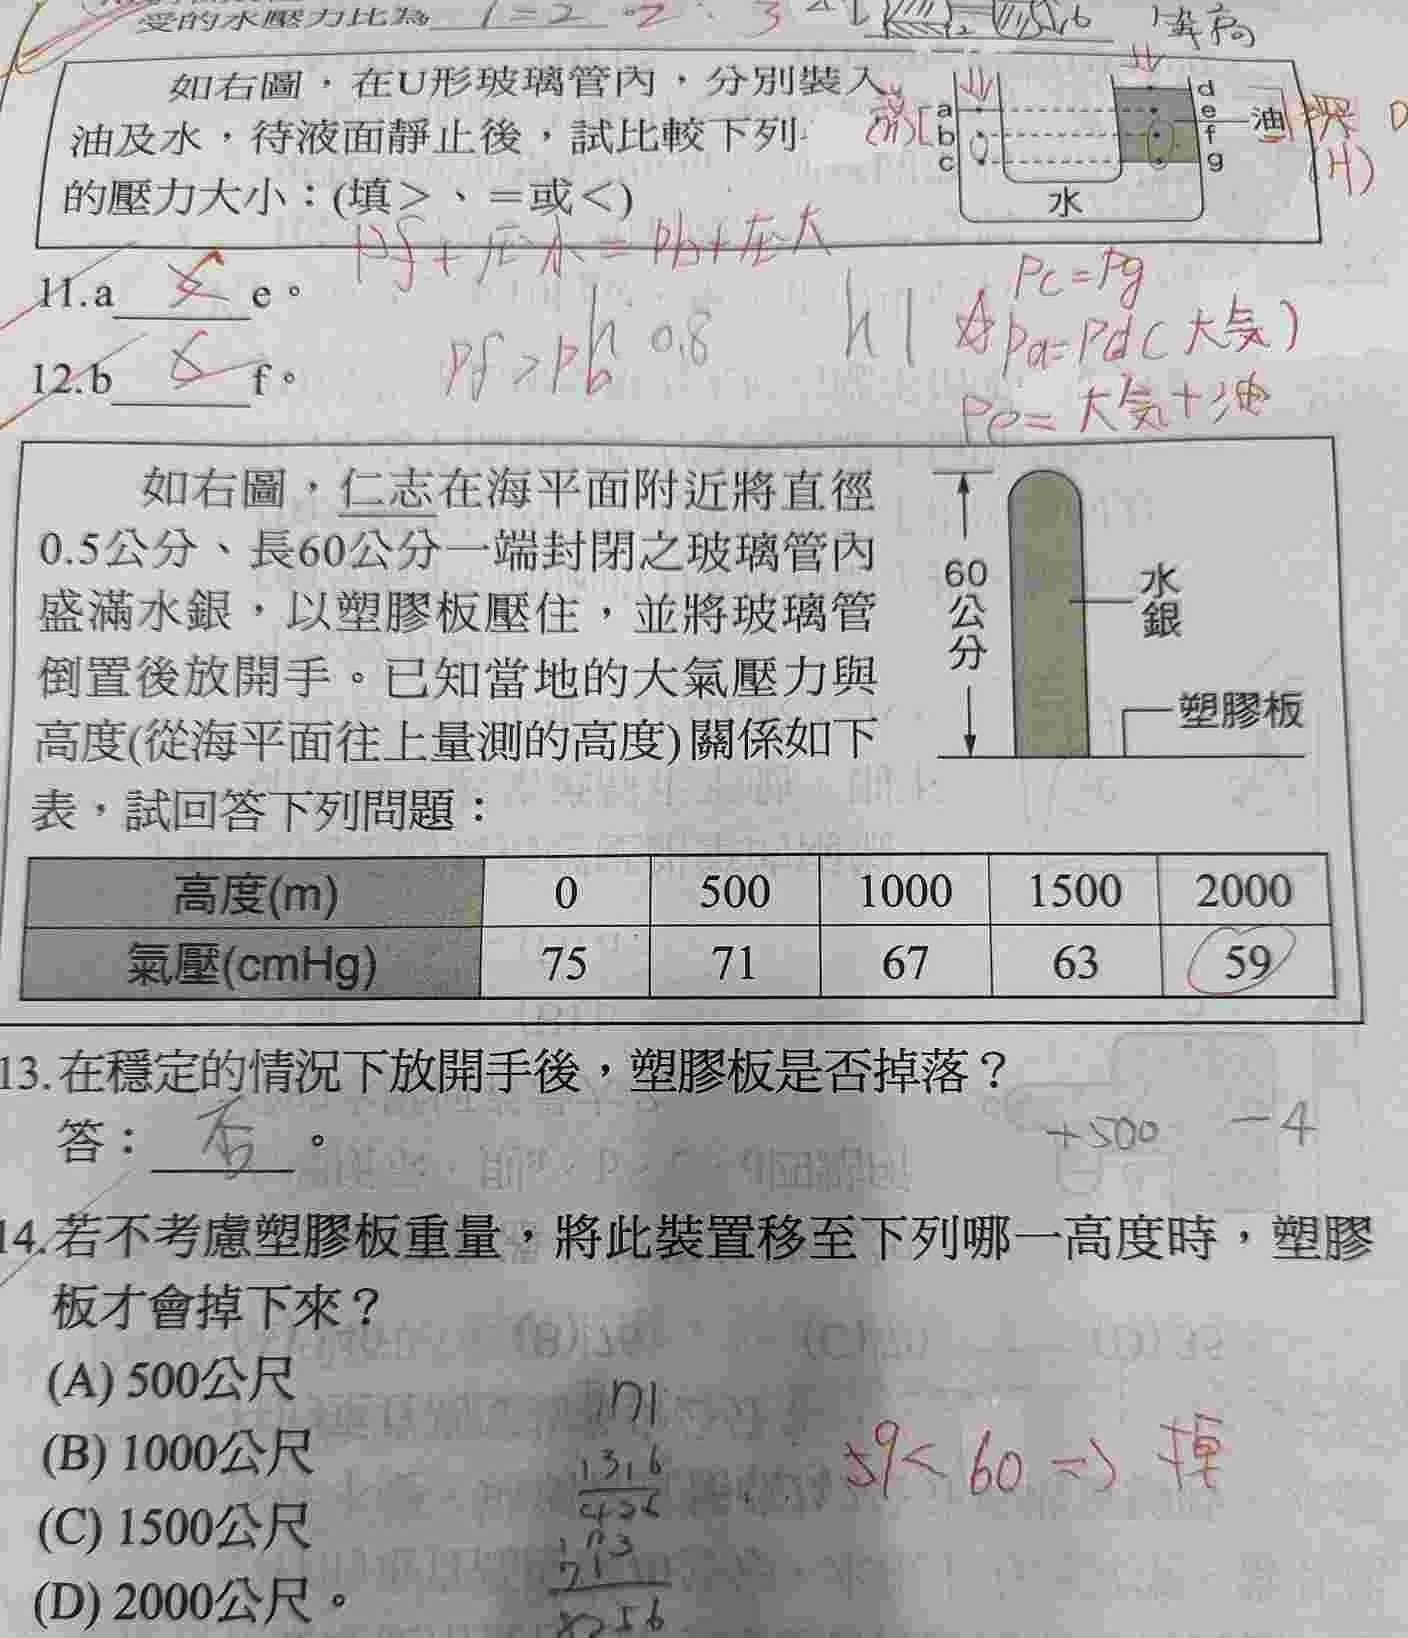 受的水壓力比為 1=2 2:3
等高
如右圖,在U形玻璃管內,分別裝入
油及水,待液面靜止後,試比較下列
的壓力大小:(填>、=或<)
a
b
c
d
e
f
g
油
水
Pf+压水=Pb+压大
11.a < e。
Pc=Pg
Pa=Pd(大気)
12.b < f。
Pf>Pb
h 0.8
h 1
Pe=大気+油
如右圖,仁志在海平面附近將直徑
0.5公分、長60公分一端封閉之玻璃管內
盛滿水銀,以塑膠板壓住,並將玻璃管
倒置後放開手。已知當地的大氣壓力與
高度(從海平面往上量測的高度)關係如下
表,試回答下列問題:
60公分
水銀
塑膠板
高度(m) 0 500 1000 1500 2000
氣壓(cmHg) 75 71 67 63 59
13.在穩定的情況下放開手後,塑膠板是否掉落?
答: 否 。
+500 -4
14.若不考慮塑膠板重量,將此裝置移至下列哪一高度時,塑膠
板才會掉下來?
(A) 500公尺
(B) 1000公尺
(C) 1500公尺
(D) 2000公尺。
59<60=>掉